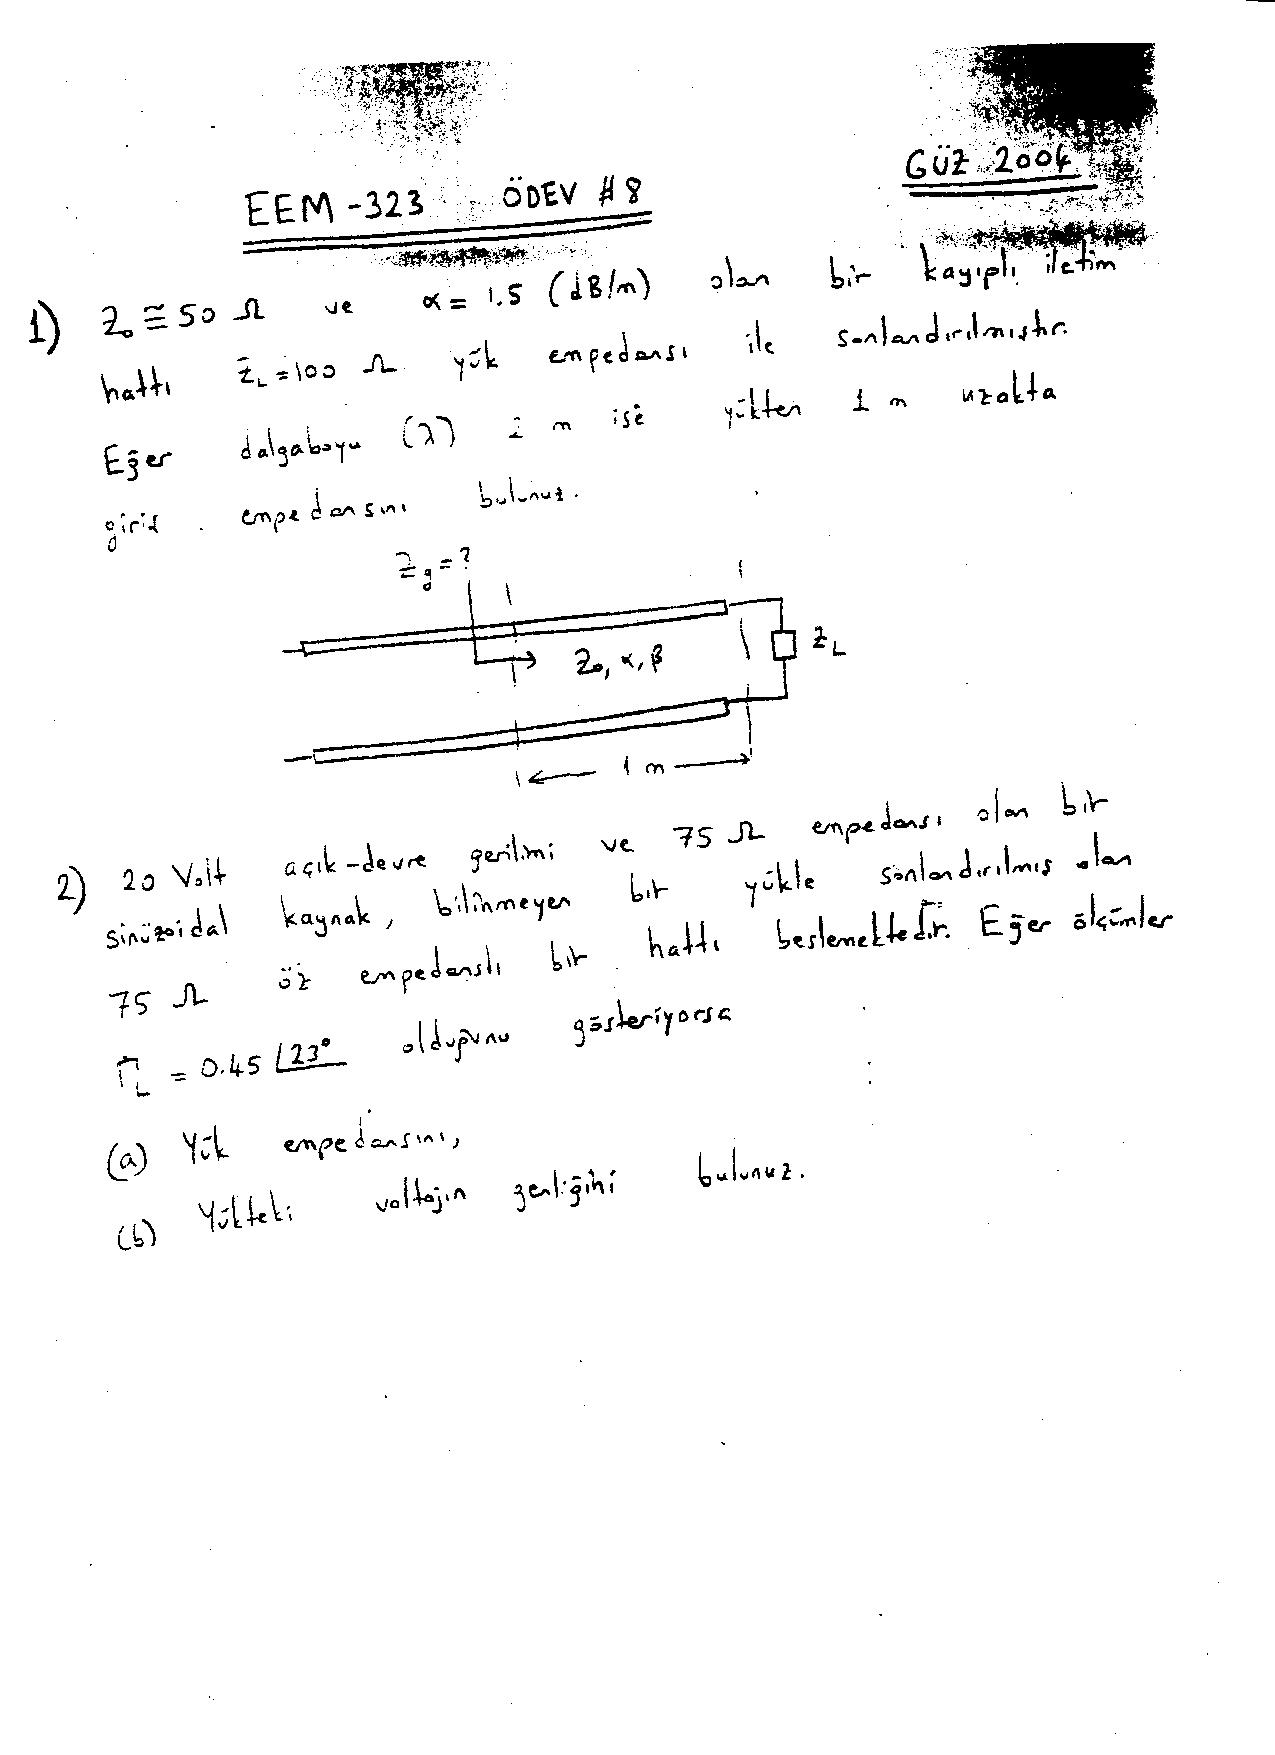 GÜZ 2004
EEM-323 ÖDEV #8
1) Z₀ ≅ 50 Ω ve α = 1.5 (dB/m) olan bir kayıplı iletim
hattı Z_L = 100 Ω yük empedansı ile sonlandırılmıştır.
Eğer dalgaboyu (λ) 2 m ise yükten 1 m uzakta
giriş empedansını bulunuz.
Z_g = ?
Z₀, α, β
Z_L
1 m
2) 20 Volt açık-devre gerilimi ve 75 Ω empedansı olan bir
sinüzoidal kaynak, bilinmeyen bir yükle sonlandırılmış olan
75 Ω öz empedanslı bir hattı beslemektedir. Eğer ölçümler
Γ_L = 0.45 ∠23° olduğunu gösteriyorsa
(a) Yük empedansını,
(b) Yükteki voltajın genliğini bulunuz.